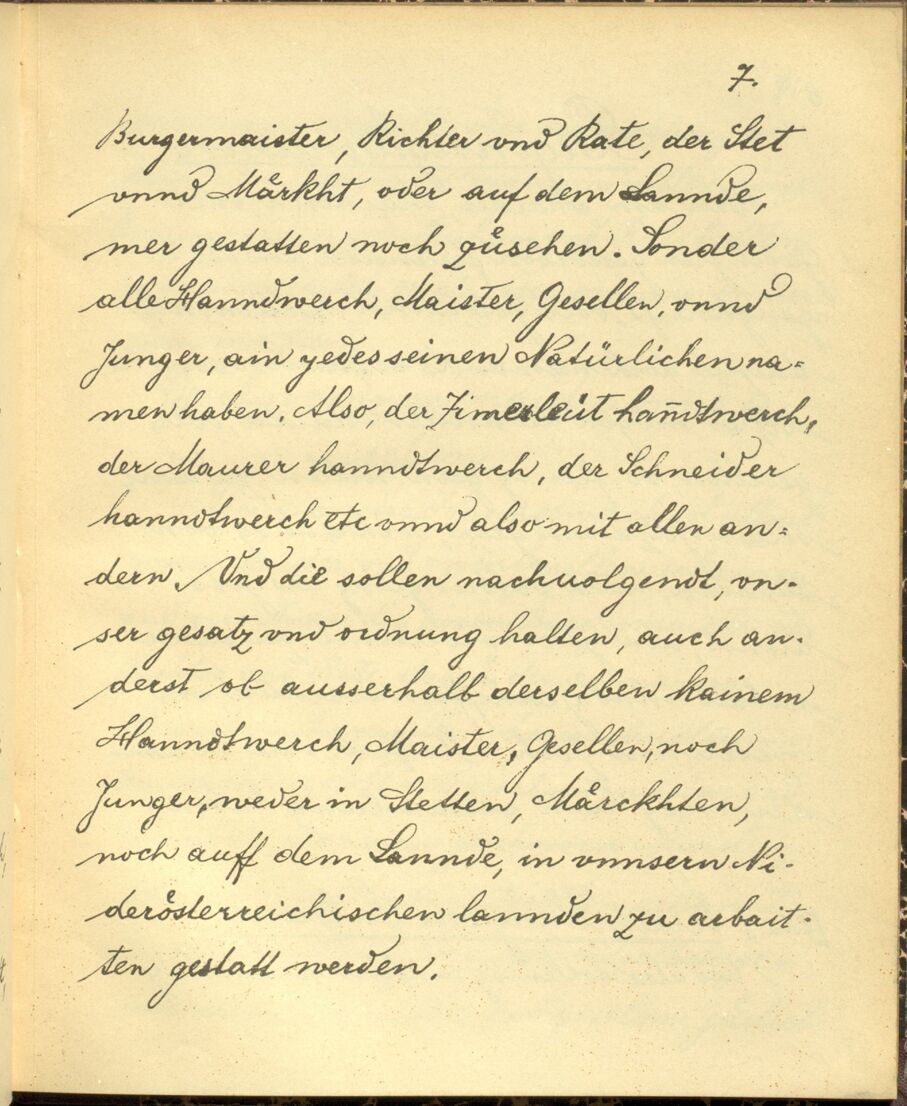 7.
Burgermaister, Richter vnd Rate, der Stet
vnnd Märkht, oder auf dem Lannde,
mer gestatten noch züsehen. Sonder
alle Hanndwerch, Maister, Gesellen, vnnd
Junger, ain yedes seinen Natürlichen na=
men haben. Also, der Zimerleüt hañdtwerch,
der Maurer hanndtwerch, der Schneider
hanndtwerch etc vnnd also mit allen an=
dern. Vnd die sollen nachuolgendt, vn-
ser gesatz vnd ordnung halten, auch an-
derst ob ausserhalb derselben kainem
Hanndtwerch, Maister, Gesellen, noch
Junger, weder in Stetten, Märckhten,
noch auff dem Lannde, in vnnsern Ni-
derösterreichischen lannden zu arbait-
ten gestatt werden.